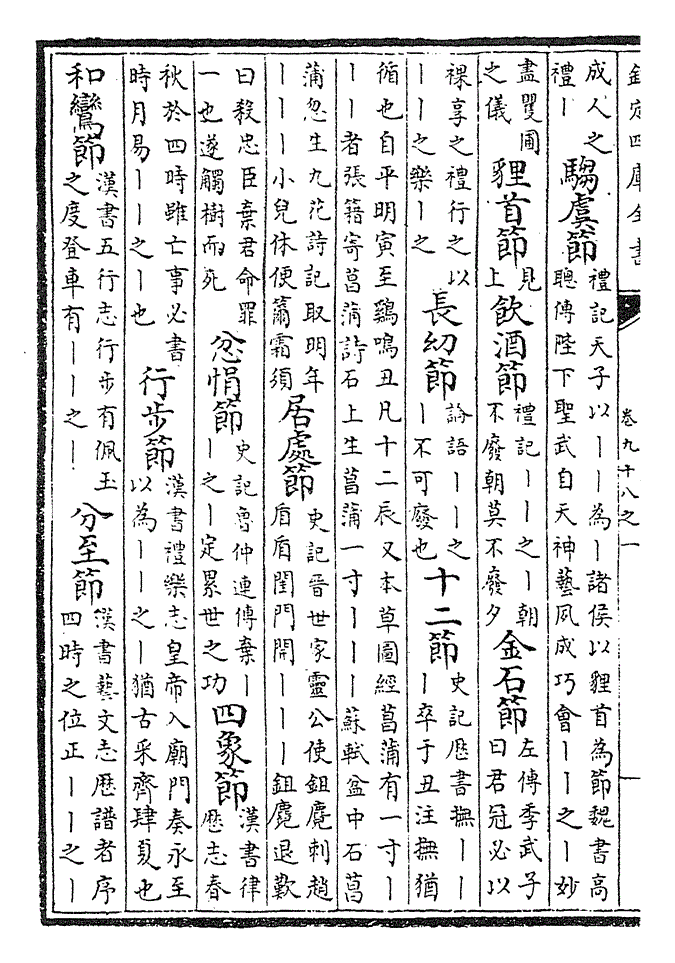 欽定四庫全書 卷九十八之一
成人之禮丨 騶虞節 禮記天子以丨丨為丨諸侯以貍首為節魏書高聰傳陛下聖武自天神藝夙成巧會丨丨之丨妙
盡瞿圃之儀 貍首節 見上 飲酒節 禮記丨丨之丨朝不廢朝莫不廢夕 金石節 左傳季武子曰君冠必以
祼享之禮行之以丨丨之樂丨之 長幼節 論語丨丨之丨不可廢也 十二節 史記厯書撫丨丨丨卒于丑注撫猶
循也自平明寅至鷄鳴丑凡十二辰又本草圖經菖蒲有一寸丨丨丨者張籍寄菖蒲詩石上生菖蒲一寸丨丨丨蘇軾盆中石菖
蒲忽生九花詩記取明年丨丨丨小兒休使籋霜須 居處節 史記晉世家靈公使鉏麑刺趙盾盾閨門開丨丨丨鉏麑退歎
曰殺忠臣棄君命罪一也遂觸樹而死 忿悁節 史記魯仲連傳棄丨丨之丨定累世之功 四象節 漢書律厯志春
秋於四時雖亡事必書時月易丨丨之丨也 行步節 漢書禮樂志皇帝入廟門奏永至以為丨丨之丨猶古采齊肆夏也
和鸞節 漢書五行志行步有佩玉之度登車有丨丨之丨 分至節 漢書藝文志厯譜者序四時之位正丨丨之丨